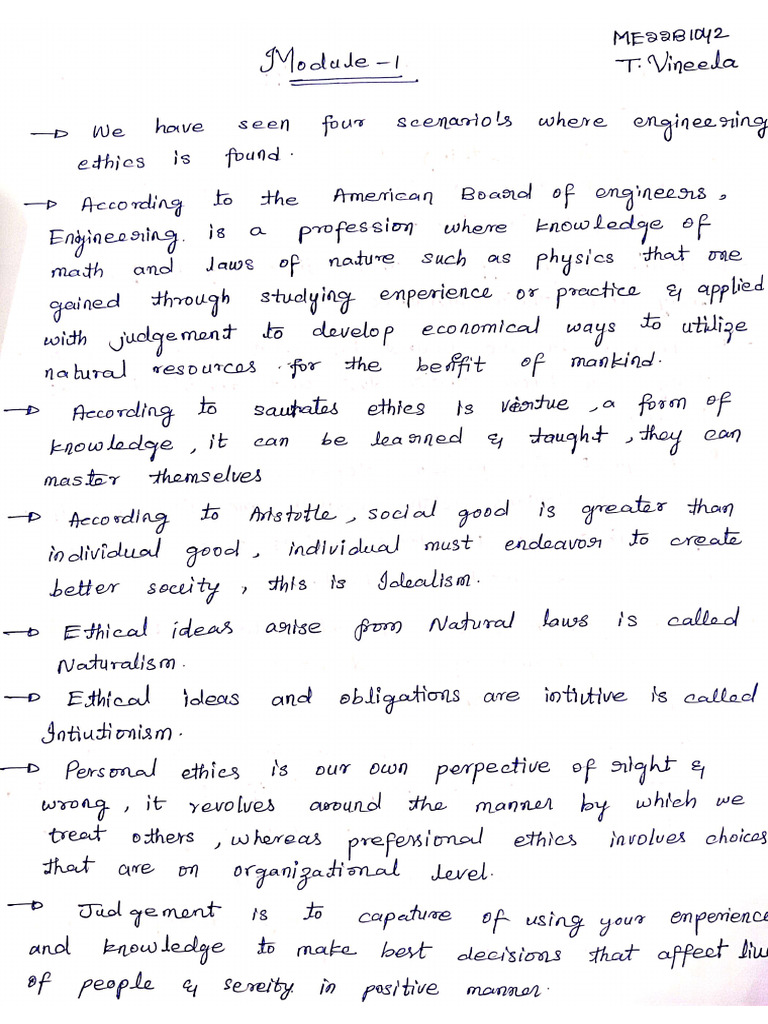 ME22B1042
Module-1
T. Vineela
→ We have seen four scenario's where engineering
ethics is found.
→ According to the American Board of engineers,
Engineering is a profession where knowledge of
math and laws of nature such as physics that one
gained through studying enperience or practice & applied
with judgement to develop economical ways to utilize
natural resources for the benffit of mankind.
→ According to sautrates ethics is virtue, a form of
knowledge, it can be learned & taught, they can
master themselves
→ According to Aristotle, social good is greater than
individual good, individual must endeavor to create
better soceity, this is Idealism.
→ Ethical ideas arise from Natural laws is called
Naturalism.
→ Ethical ideas and obligations are intiutive is called
Intiutionism.
→ Personal ethics is our own perpective of right &
wrong, it revolves around the manner by which we
treat others, whereas prefessional ethics involves choices
that are on organizational level.
→ Judgement is to capature of using your enperience
and knowledge to make best decisions that affect liv
of people & sereity in positive manner.